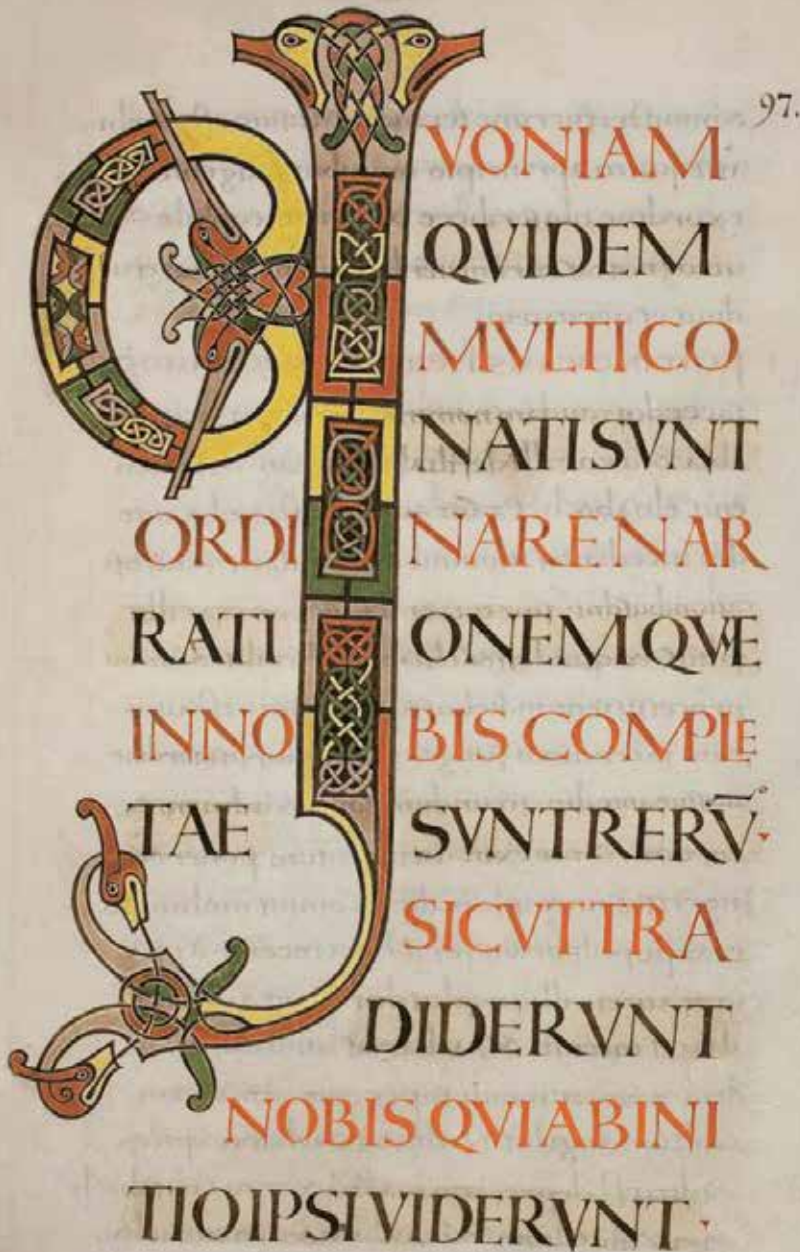 97.
QVONIAM
QVIDEM
MVLTI CO
NATI SVNT
ORDINARE NAR
RATIONEM QVAE
IN NOBIS COMPLE
TAE SVNT RERV̄·
SICVT TRA
DIDERVNT
NOBIS QVI AB INI
TIO IPSI VIDERVNT·